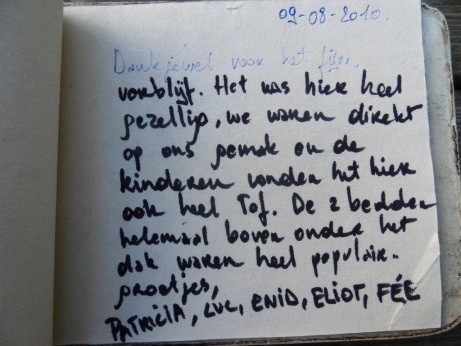 09-08-2010.
Dankjewel voor het fijn
verblijf. Het was hier heel
gezellig, we waren direkt
op ons gemak en de
kinderen vonden het hier
ook heel Tof. De 2 bedden
helemaal boven onder het
dak waren heel populair.
groetjes,
PATRICIA, LUC, ENID, ELIOT, FÉE